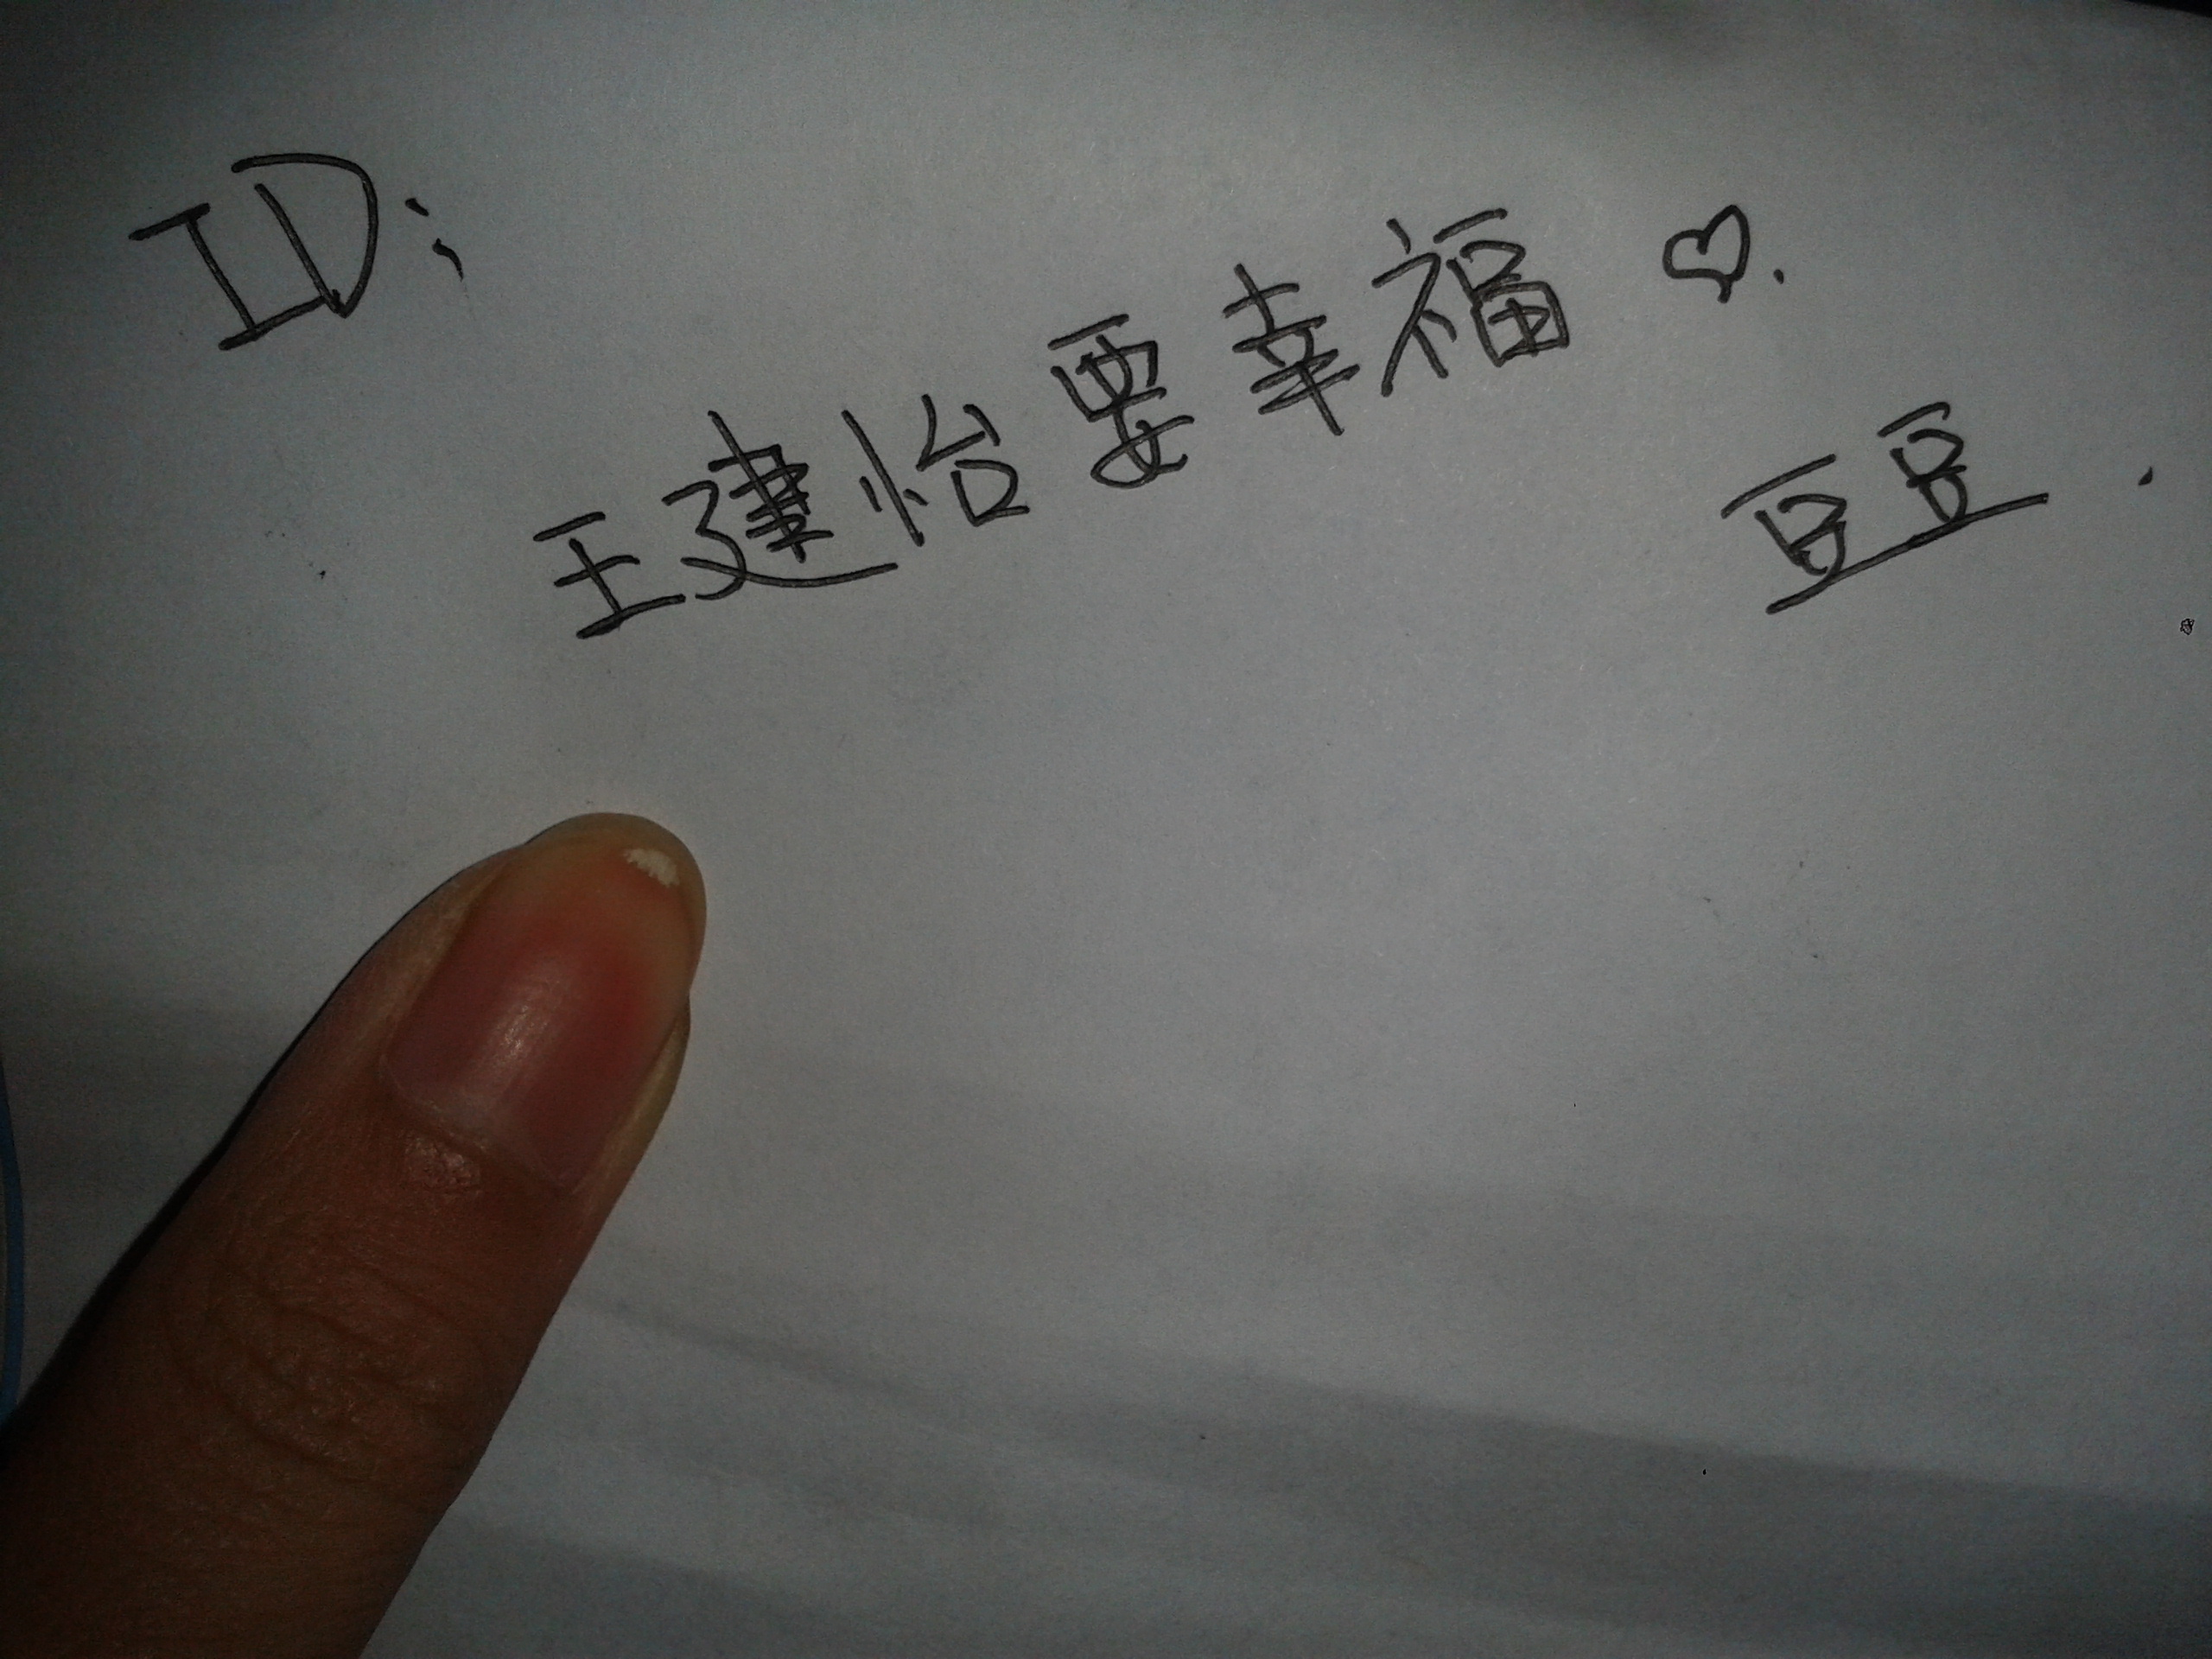 ID;
王建怡要幸福♡.
豆豆.